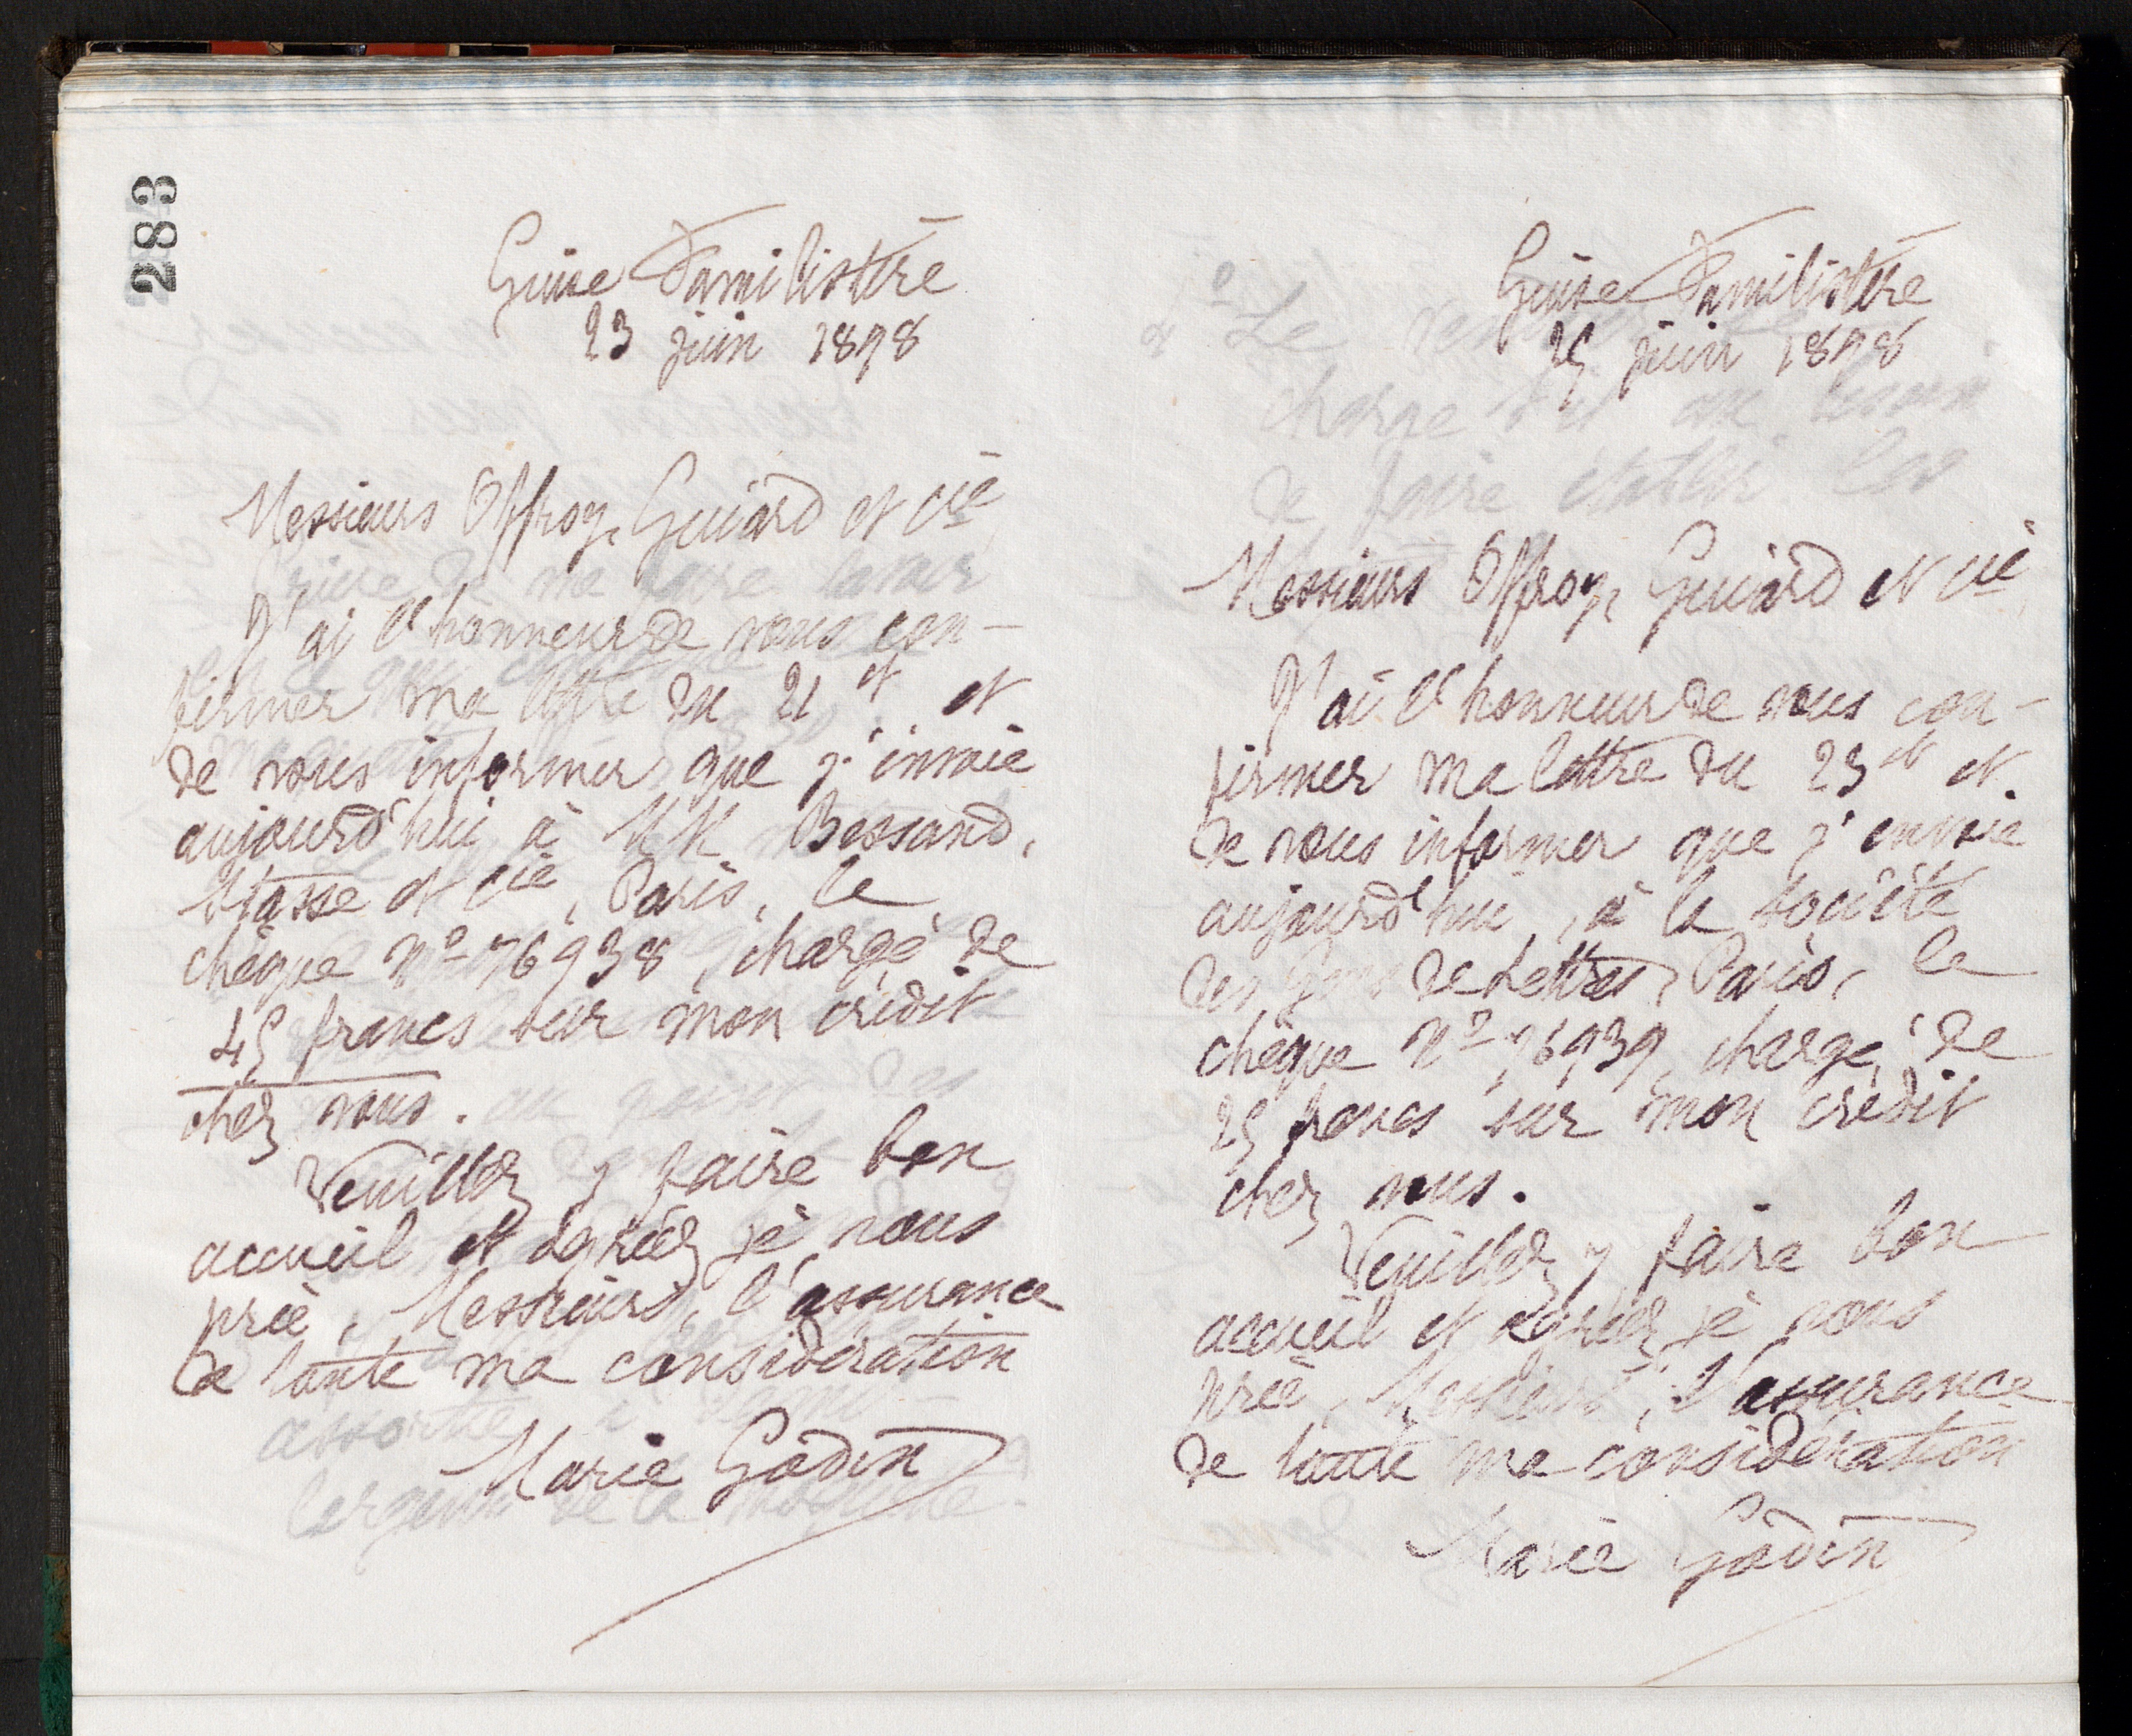 283
Guise Familistère
23 juin 1898
Messieurs Offroy, Guiard et Cie
J'ai l'honneur de vous con-
firmer ma lettre du 21 ct et
de vous informer que j'envoie
aujourd'hui à MM Bessand,
Stasse et Cie, Paris, le
chèque No 76938, chargé de
45 francs sur mon crédit
chez vous.
Veuillez y faire bon
accueil et agréez, je vous
prie, Messieurs, l'assurance
de toute ma considération
Marie Godin
Guise Familistère
25 juin 1898
Messieurs Offroy, Guiard et Cie
J'ai l'honneur de vous con-
firmer ma lettre du 23 ct et
de vous informer que j'envoie
aujourd'hui, à la Société
des Gens de Lettres, Paris, le
chèque No 76939, chargé de
25 francs sur mon crédit
chez vous.
Veuillez y faire bon
accueil et agréez, je vous
prie, Messieurs, l'assurance
de toute ma considération
Marie Godin